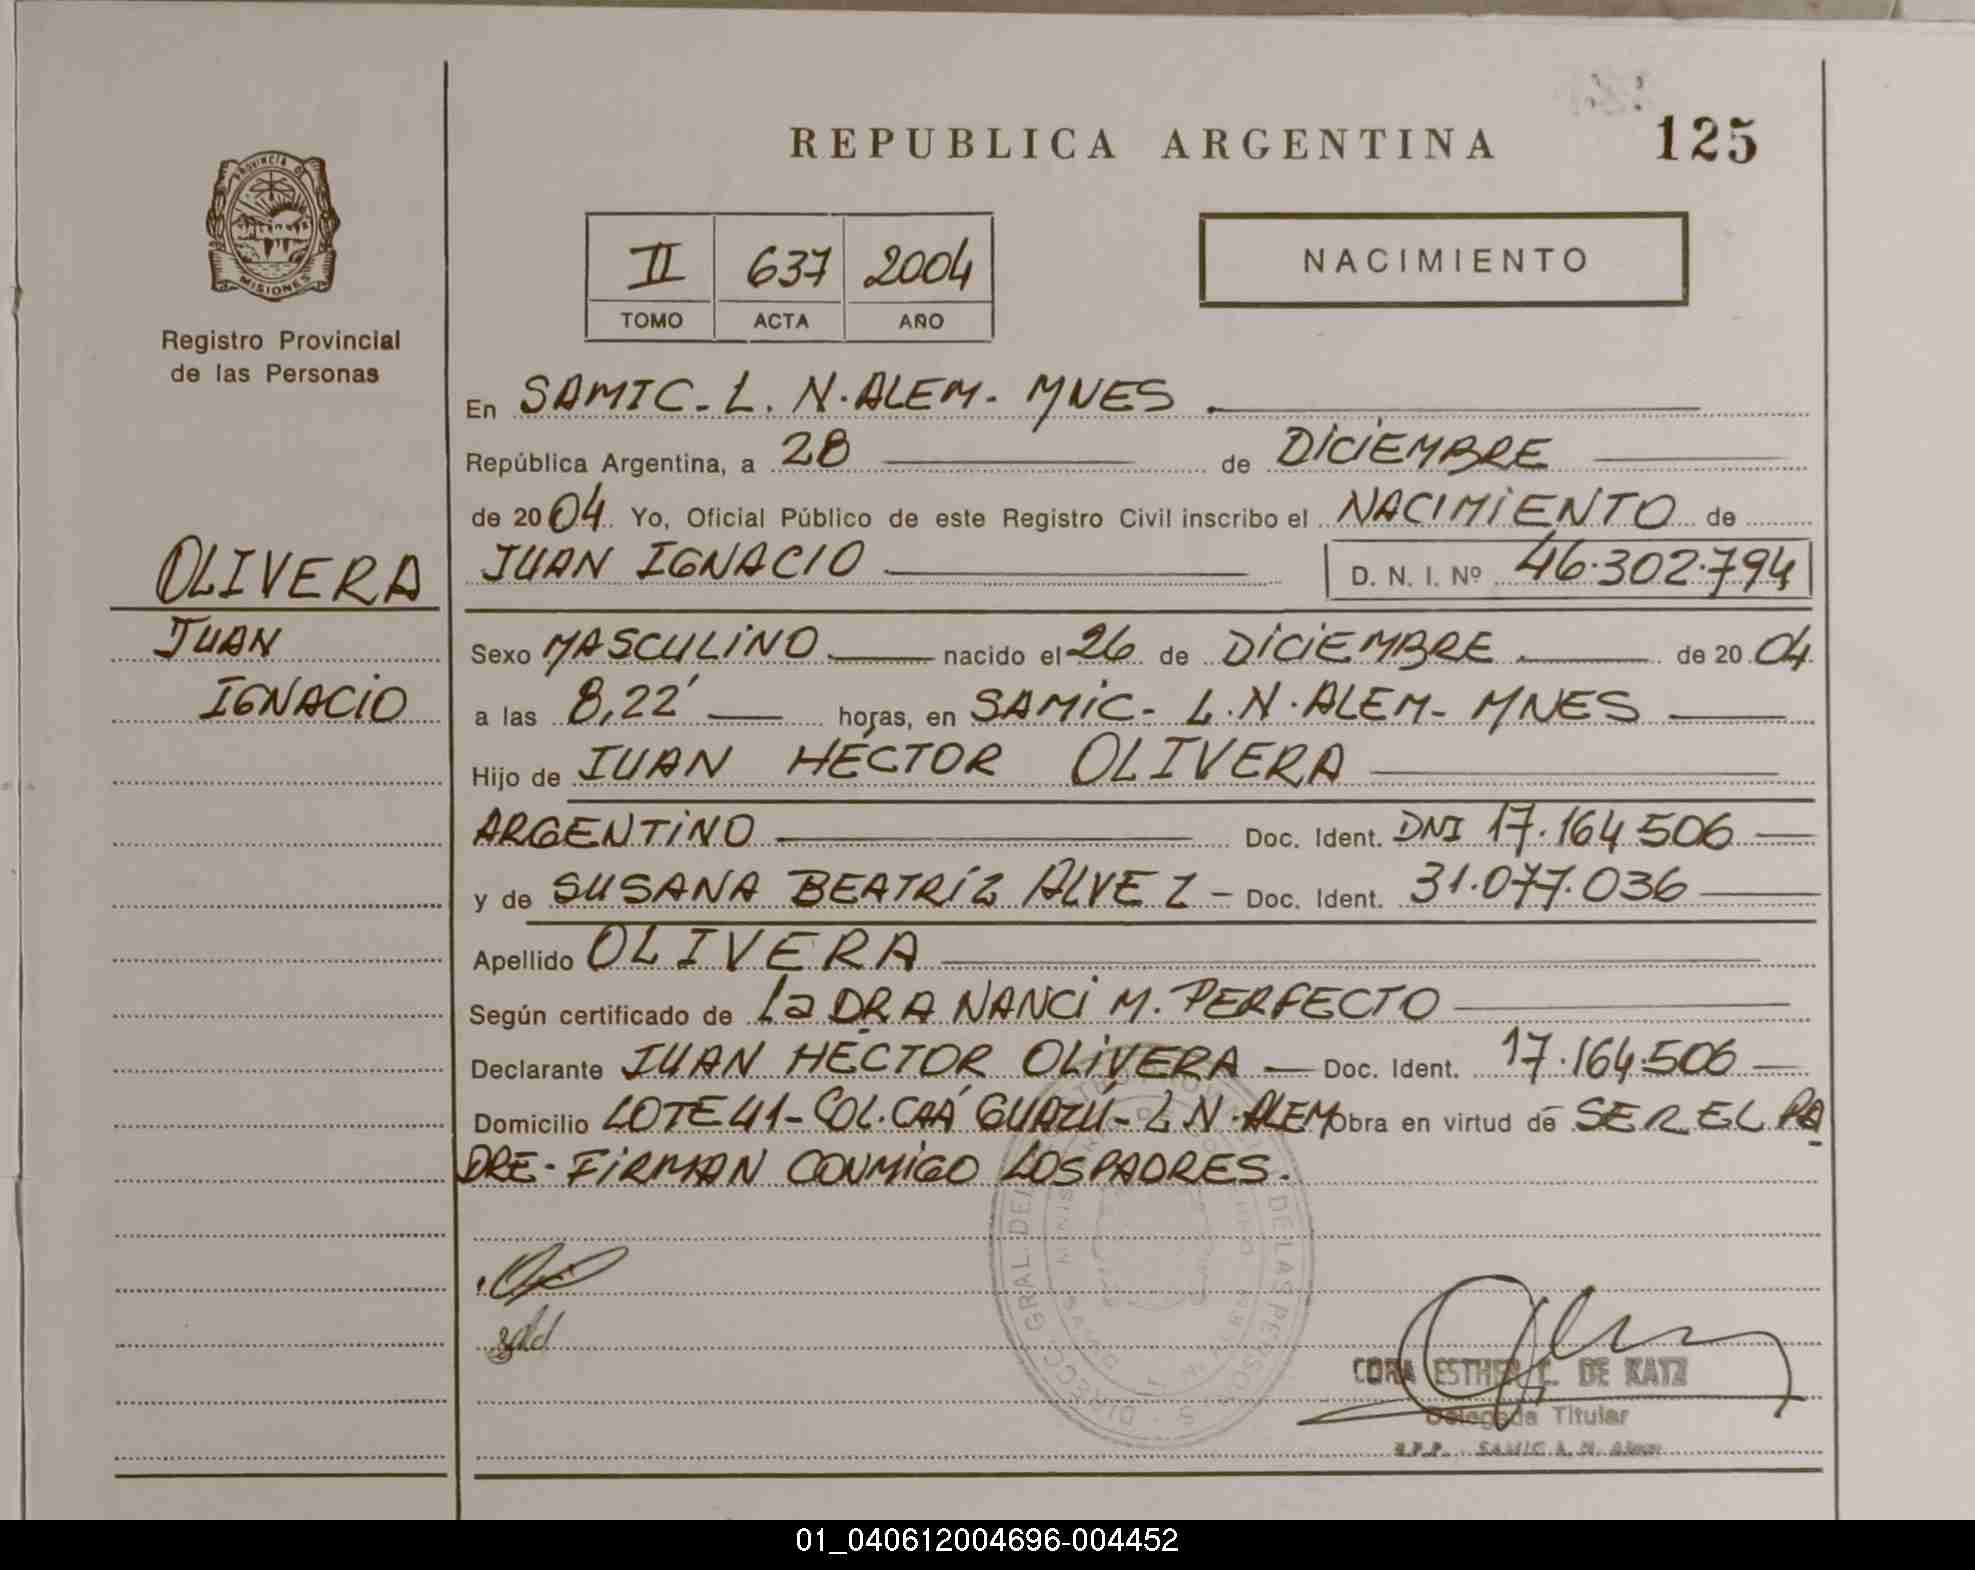 REPUBLICA ARGENTINA
125
PROVINCIA DE
MISIONES
Registro Provincial
de las Personas
II 637 2004
TOMO ACTA AÑO
NACIMIENTO
OLIVERA
JUAN
IGNACIO
En SAMIC - L. N. ALEM - MNES
República Argentina, a 28 de DICIEMBRE
de 2004 Yo, Oficial Público de este Registro Civil inscribo el NACIMIENTO de
JUAN IGNACIO D. N. I. Nº 46.302.794
Sexo MASCULINO nacido el 26 de DICIEMBRE de 2004
a las 8,22' horas, en SAMIC - L. N. ALEM - MNES
Hijo de JUAN HÉCTOR OLIVERA
ARGENTINO Doc. Ident. DNI 17.164.506
y de SUSANA BEATRÍZ ALVEZ - Doc. Ident. 31.077.036
Apellido OLIVERA
Según certificado de la DRA NANCI M. PERFECTO
Declarante JUAN HÉCTOR OLIVERA - Doc. Ident. 17.164.506
Domicilio LOTE 41 - COL. CAÁ GUAZÚ - L N. ALEM Obra en virtud de SER EL PA
DRE - FIRMAN CONMIGO LOS PADRES.
CORA ESTHER C. DE KATZ
Delegada Titular
R.P.P. SAMIC L. N. Alem
01_040612004696-004452